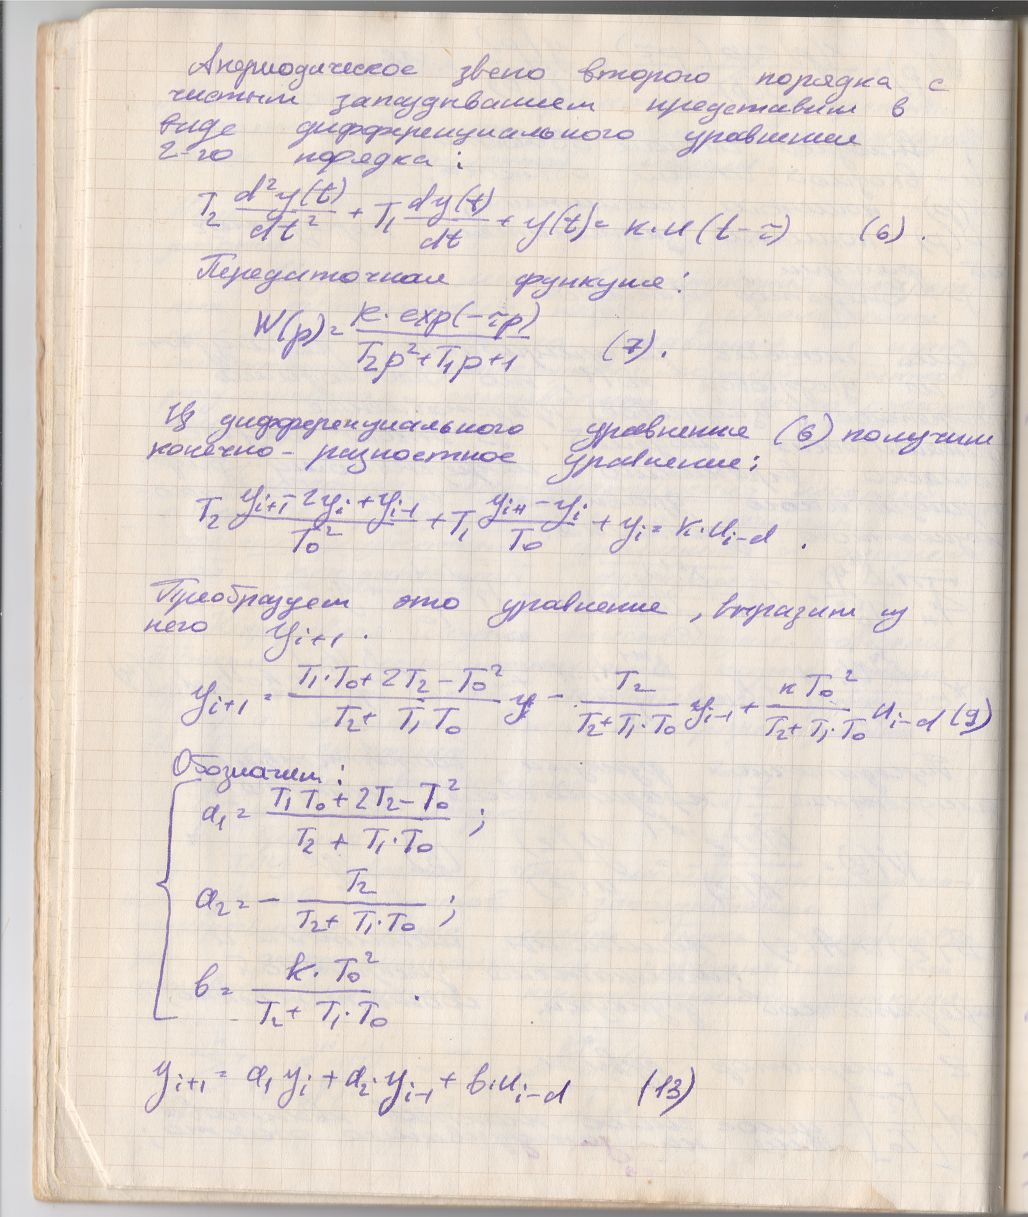 Апериодическое звено второго порядка с
чистым запаздыванием представим в
виде дифференциального уравнения
2-го порядка:
T₂ d²y(t)/dt² + T₁ dy(t)/dt + y(t) = к·u(t-τ) (6).
Передаточная функция:
W(p) = к·exp(-τp)/(T₂p²+T₁p+1) (7).
Из дифференциального уравнения (6) получим
конечно-разностное уравнение:
T₂ (yᵢ₊₁-2yᵢ+yᵢ₋₁)/T₀² + T₁ (yᵢ₊₁-yᵢ)/T₀ + yᵢ = к·uᵢ₋d.
Преобразуем это уравнение, выразим из
него yᵢ₊₁.
yᵢ₊₁ = (T₁·T₀+2T₂-T₀²)/(T₂+T₁T₀) y - T₂/(T₂+T₁·T₀) yᵢ₋₁ + кT₀²/(T₂+T₁·T₀) uᵢ₋d (9)
Обозначим:
a₁ = (T₁T₀+2T₂-T₀²)/(T₂+T₁·T₀);
a₂ = - T₂/(T₂+T₁·T₀);
в = k·T₀²/(T₂+T₁·T₀).
yᵢ₊₁ = a₁yᵢ + a₂·yᵢ₋₁ + в·uᵢ₋d (13)